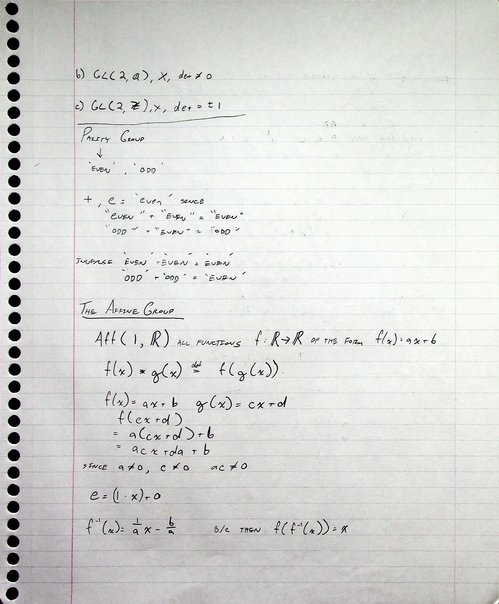 b) GL(2, Q), X, det ≠ 0
c) GL(2, Z), X, det = ±1
PARITY GROUP
↓
'EVEN', 'ODD'
+, e = 'even' SINCE
"EVEN" + "EVEN" = "EVEN"
"ODD" + "EVEN" = "ODD"
INVERSE 'EVEN' + 'EVEN' = 'EVEN'
'ODD' + 'ODD' = 'EVEN'
THE AFFINE GROUP
Aff(1, ℝ) ALL FUNCTIONS f: ℝ → ℝ OF THE FORM f(x) = ax + b
f(x) * g(x) def= f(g(x)).
f(x) = ax + b g(x) = cx + d
f(cx + d)
= a(cx + d) + b
= acx + da + b
SINCE a ≠ 0, c ≠ 0 ac ≠ 0
e = (1 · x) + 0
f⁻¹(x) = 1/a x - b/a B/C THEN f(f⁻¹(x)) = x